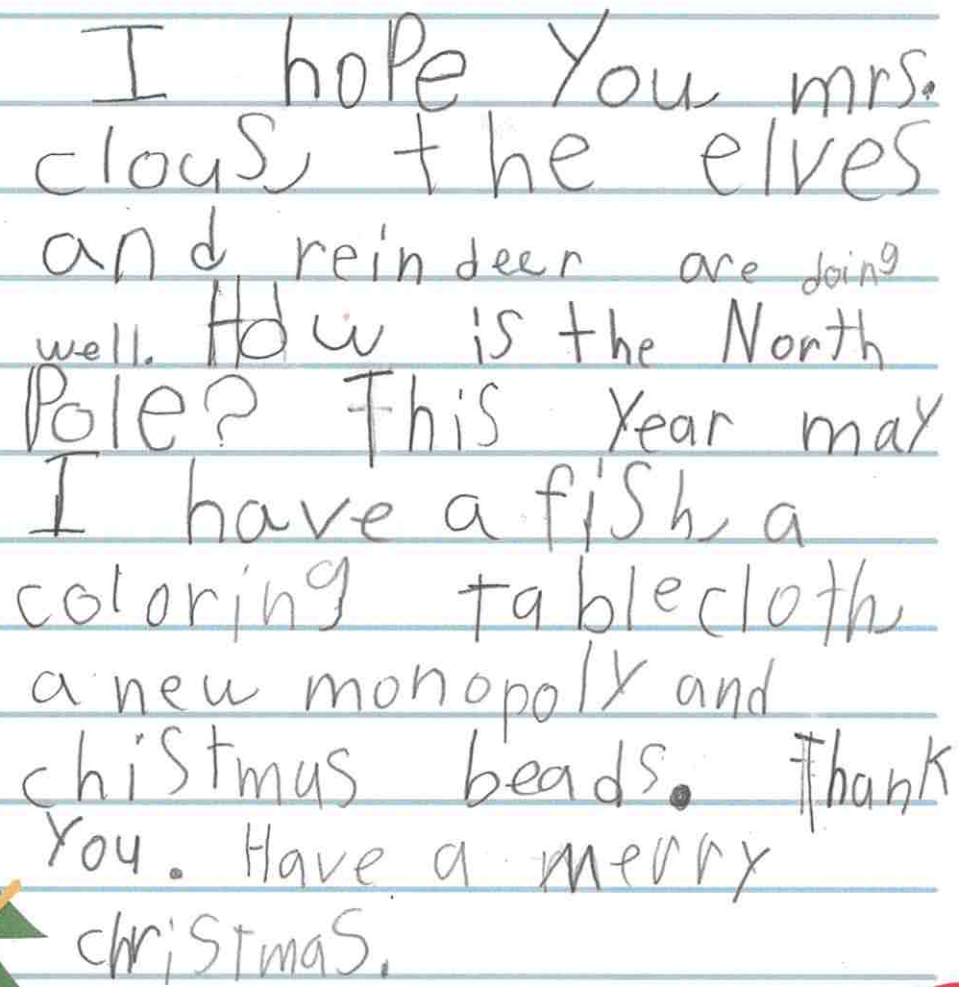 I hope You mrs.
clous, the elves
and reindeer are doing
well. How is the North
Pole? This Year may
I have a fish, a
coloring tablecloth,
a new monopoly and
chistmus beads. Thank
You. Have a merry
christmas.